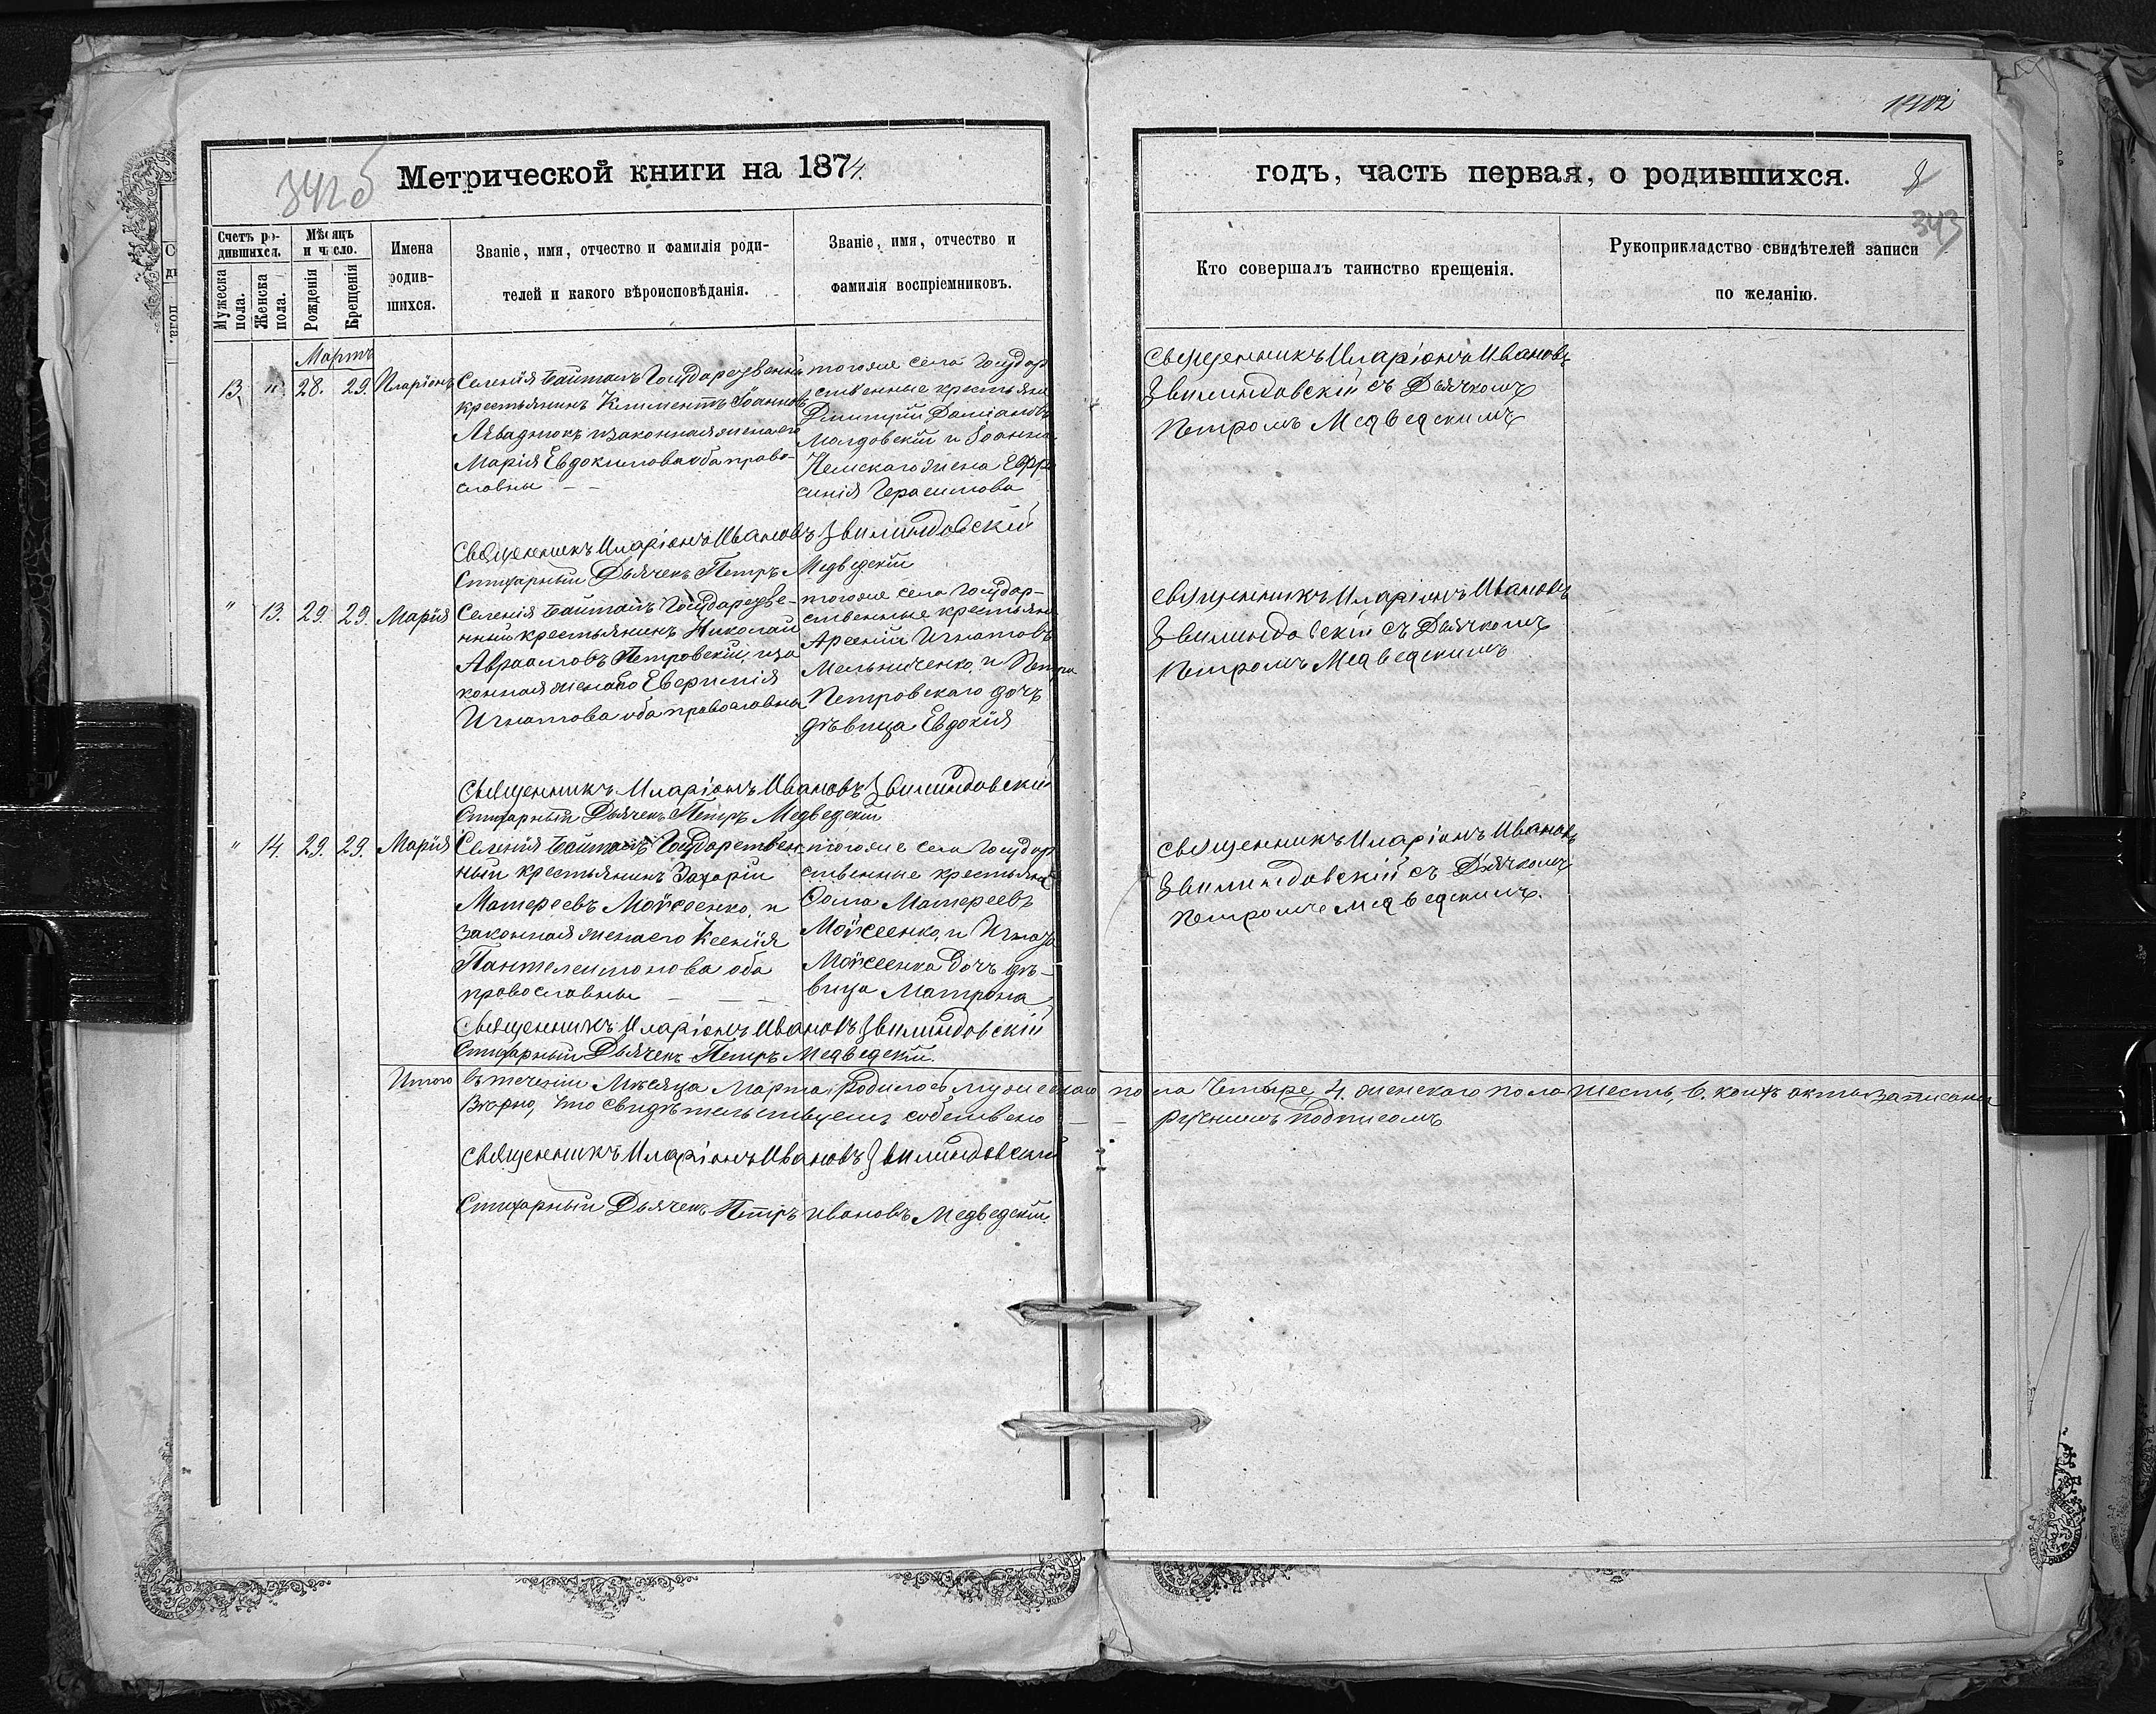 1402
342б
Метрической книги на 1874
годъ, часть первая, о родившихся.
343
Счетъ ро-
дившихся.
Мѣсяцъ
и число.
Мужеска
пола.
Женска
пола.
Рожденія
Крещенія
Имена
родив-
шихся.
Званіе, имя, отчество и фамилія роди-
телей и какого вѣроисповѣданія.
Званіе, имя, отчество и
фамилія воспріемниковъ.
Кто совершалъ таинство крещенія.
Рукоприкладство свидѣтелей записи
по желанію.
Мартъ
13. " 28. 29. Иларіонъ
Селенія Байталъ Государственный
крестьянинъ Климентъ Іоанновъ
и законная жена его
Марія Евдокимова оба право-
славны
тогоже села Государ
ственные крестьяне
Димитрій Даміановъ
Молдовскій и Іоанна
жена Евфро
синія Герасимова
Священникъ Иларіонъ Ивановъ
Стихарный Дьячекъ Петръ Медведскій
Священникъ Иларіонъ Ивановъ
съ Дьячкомъ
Петромъ Медведскимъ
" 13. 29. 29. Марія
Селенія Байталъ Государстве-
нный крестьянинъ Николай
Авраамовъ Петровскій, и за
конная жена его Евфимія
Игнатова оба православны
тогоже села Государ-
ственные крестьяне
Арсеній Игнатовъ
Мельниченко, и Петра
Петровскаго дочь
дѣвица Евдокія
Священникъ Иларіонъ Ивановъ
Стихарный Дьячекъ Петръ Медведскій
Священникъ Иларіонъ Ивановъ
съ Дьячкомъ
Петромъ Медведскимъ
" 14. 29. 29. Марія
Селенія Байталъ Государствен
ный крестьянинъ Захарій
Матфеевъ Моисеенко, и
законная жена его Ксенія
Пантелеимонова оба
православны
тогоже села Государ
ственные крестьяне
Фома Матфеевъ
Моисеенко, и
Моисеенка дочь дѣ-
вица Матрона
Священникъ Иларіонъ Ивановъ
Стихарный Дьячекъ Петръ Медведскій.
Священникъ Иларіонъ Ивановъ
съ Дьячкомъ
Петромъ Медведскимъ.
Итого въ теченіи Мѣсяца Марта родилось мужескаго пола Четыре 4. женскаго пола шесть, 6. акты записаны
Вѣрно, что свидѣтельствуемъ собствено ручнымъ подписомъ
Священникъ Иларіонъ Ивановъ
Стихарный Дьячекъ Петръ Ивановъ Медведскій.